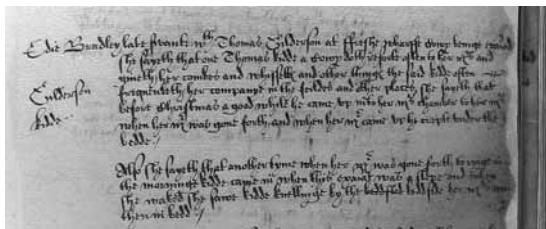 Edie Brindley late servante wth Thomas Culderson at ffreshe wharffe
she sayeth that one Thomas kidde a doth resorte often to her mrs and
giveth her combes and whissells and other thinges the said kidde often
frequenteth her companye in the feildes and other places she sayeth that
Culderson
kidde
before Christmas a good while he came up into her mrs chamber to her mrs
when her mr was gone forth and when her mr came up he crepte under the
bedde
Also she sayeth that another tyme when her mr was gone forth
the morninge kidde came in when this examt was a slepe and when
she waked she sawe kidde knellinge by the bedside her mrs
then in bedd